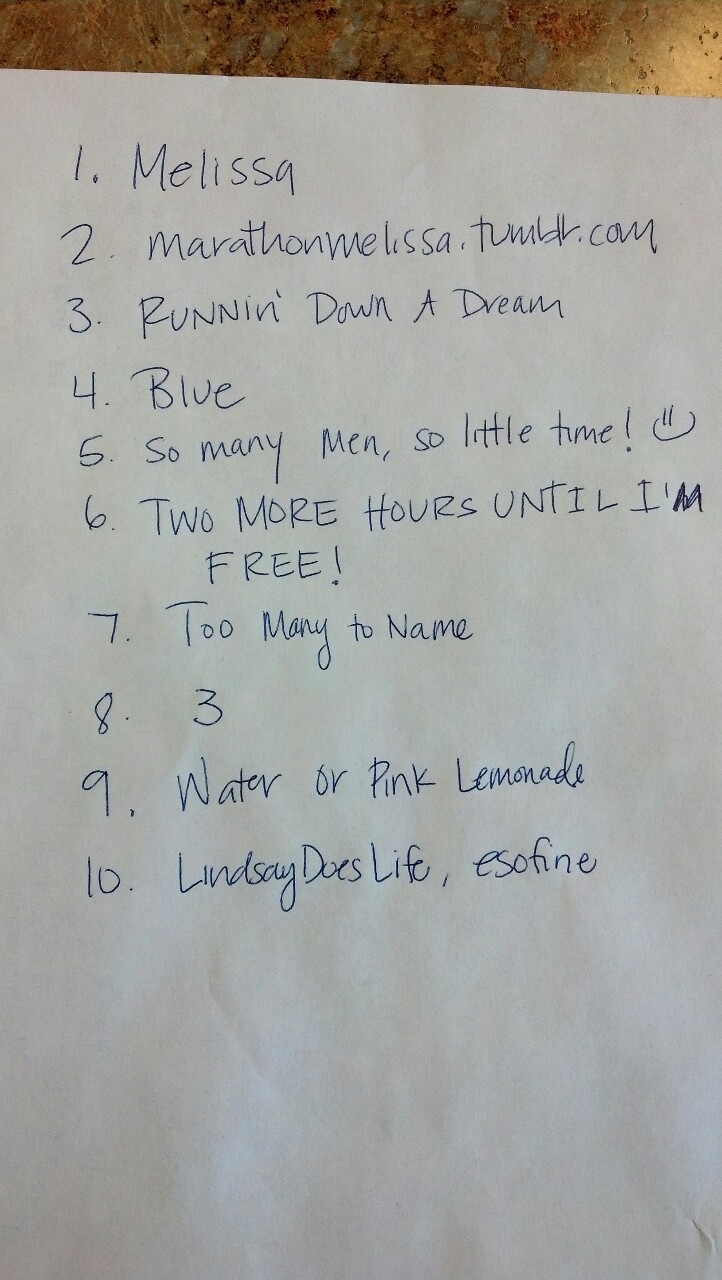 1. Melissa
2. marathonmelissa.tumblr.com
3. RUNNin' Down A Dream
4. Blue
5. So many men, so little time!
6. TWO MORE HOURS UNTIL I'M
FREE!
7. Too Many to Name
8. 3
9. Water or Pink Lemonade
10. LindsayDoesLife, esofine